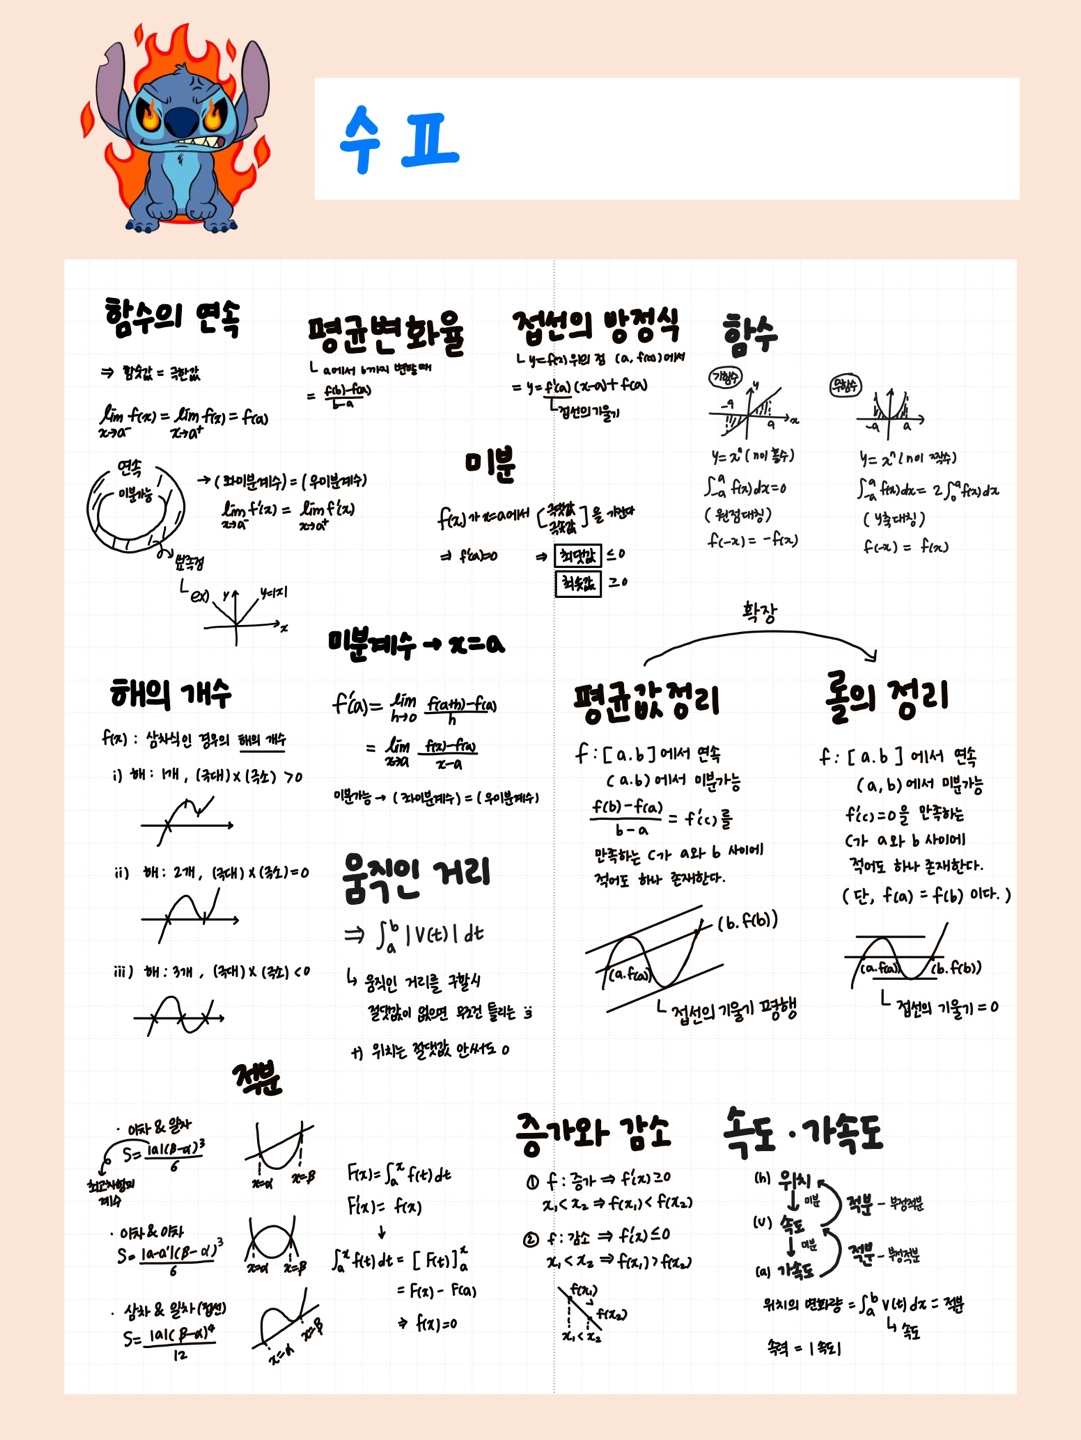 수 II
함수의 연속
⇒ 함숫값 = 극한값
lim x→a⁻ f(x) = lim x→a⁺ f(x) = f(a)
연속
미분가능
→ (좌미분계수) = (우미분계수)
lim x→a⁻ f'(x) = lim x→a⁺ f'(x)
뾰족점
ex)
y
y=|x|
x
평균변화율
└ a에서 b까지 변할 때
= f(b)-f(a) / b-a
접선의 방정식
└ y=f(x) 위의 점 (a, f(a))에서
= y=f'(a)(x-a)+f(a)
└접선의 기울기
함수
기함수
-a
y
a
x
y=xⁿ (n이 홀수)
∫₋ₐᵃ f(x)dx=0
(원점대칭)
f(-x) = -f(x)
우함수
-a
a
y=xⁿ (n이 짝수)
∫₋ₐᵃ f(x)dx = 2∫₀ᵃ f(x)dx
(y축대칭)
f(-x) = f(x)
미분
f(x)가 x=a에서 [극댓값 극솟값]을 가진다
⇒ f'(a)=0
⇒ 최댓값 ≤0
최솟값 ≥0
미분계수 → x=a
f'(a) = lim h→0 f(a+h)-f(a) / h
= lim x→a f(x)-f(a) / x-a
미분가능 → (좌미분계수) = (우미분계수)
해의 개수
f(x) : 삼차식인 경우의 해의 개수
i) 해 : 1개, (극대)×(극소) >0
ii) 해 : 2개, (극대)×(극소)=0
iii) 해 : 3개, (극대)×(극소) <0
움직인 거리
⇒ ∫ₐᵇ |V(t)| dt
↳ 움직인 거리를 구할시
절댓값이 없으면 무조건 틀리는
+) 위치는 절댓값 안써도 o
확장
평균값정리
f : [a.b]에서 연속
(a.b)에서 미분가능
f(b)-f(a) / b-a = f'(c)를
만족하는 c가 a와 b 사이에
적어도 하나 존재한다.
(b.f(b))
(a.f(a))
└ 접선의 기울기 평행
롤의 정리
f : [a.b]에서 연속
(a,b)에서 미분가능
f'(c)=0을 만족하는
c가 a와 b 사이에
적어도 하나 존재한다.
(단, f(a) = f(b) 이다.)
(a.f(a))
(b.f(b))
└ 접선의 기울기 = 0
적분
· 이차 & 일차
S= |a|(β-α)³ / 6
최고차항의
계수
x=α
x=β
· 이차 & 이차
S= |a-a'|(β-α)³ / 6
x=α
x=β
· 삼차 & 일차(접선)
S= |a|(β-α)⁴ / 12
x=α
x=β
F(x) = ∫ₐˣ f(t)dt
F'(x) = f(x)
↓
∫ₐˣ f(t)dt = [F(t)]ₐˣ
= F(x) - F(a)
⇒ f(x)=0
증가와 감소
① f : 증가 ⇒ f'(x)≥0
x₁<x₂ ⇒ f(x₁)<f(x₂)
② f : 감소 ⇒ f'(x)≤0
x₁<x₂ ⇒ f(x₁)>f(x₂)
f(x₁)
f(x₂)
x₁<x₂
속도 · 가속도
(h) 위치
미분
적분 - 부정적분
(v) 속도
미분
적분 - 부정적분
(a) 가속도
위치의 변화량 = ∫ₐᵇ V(t) dx = 적분
↳ 속도
속력 = |속도|